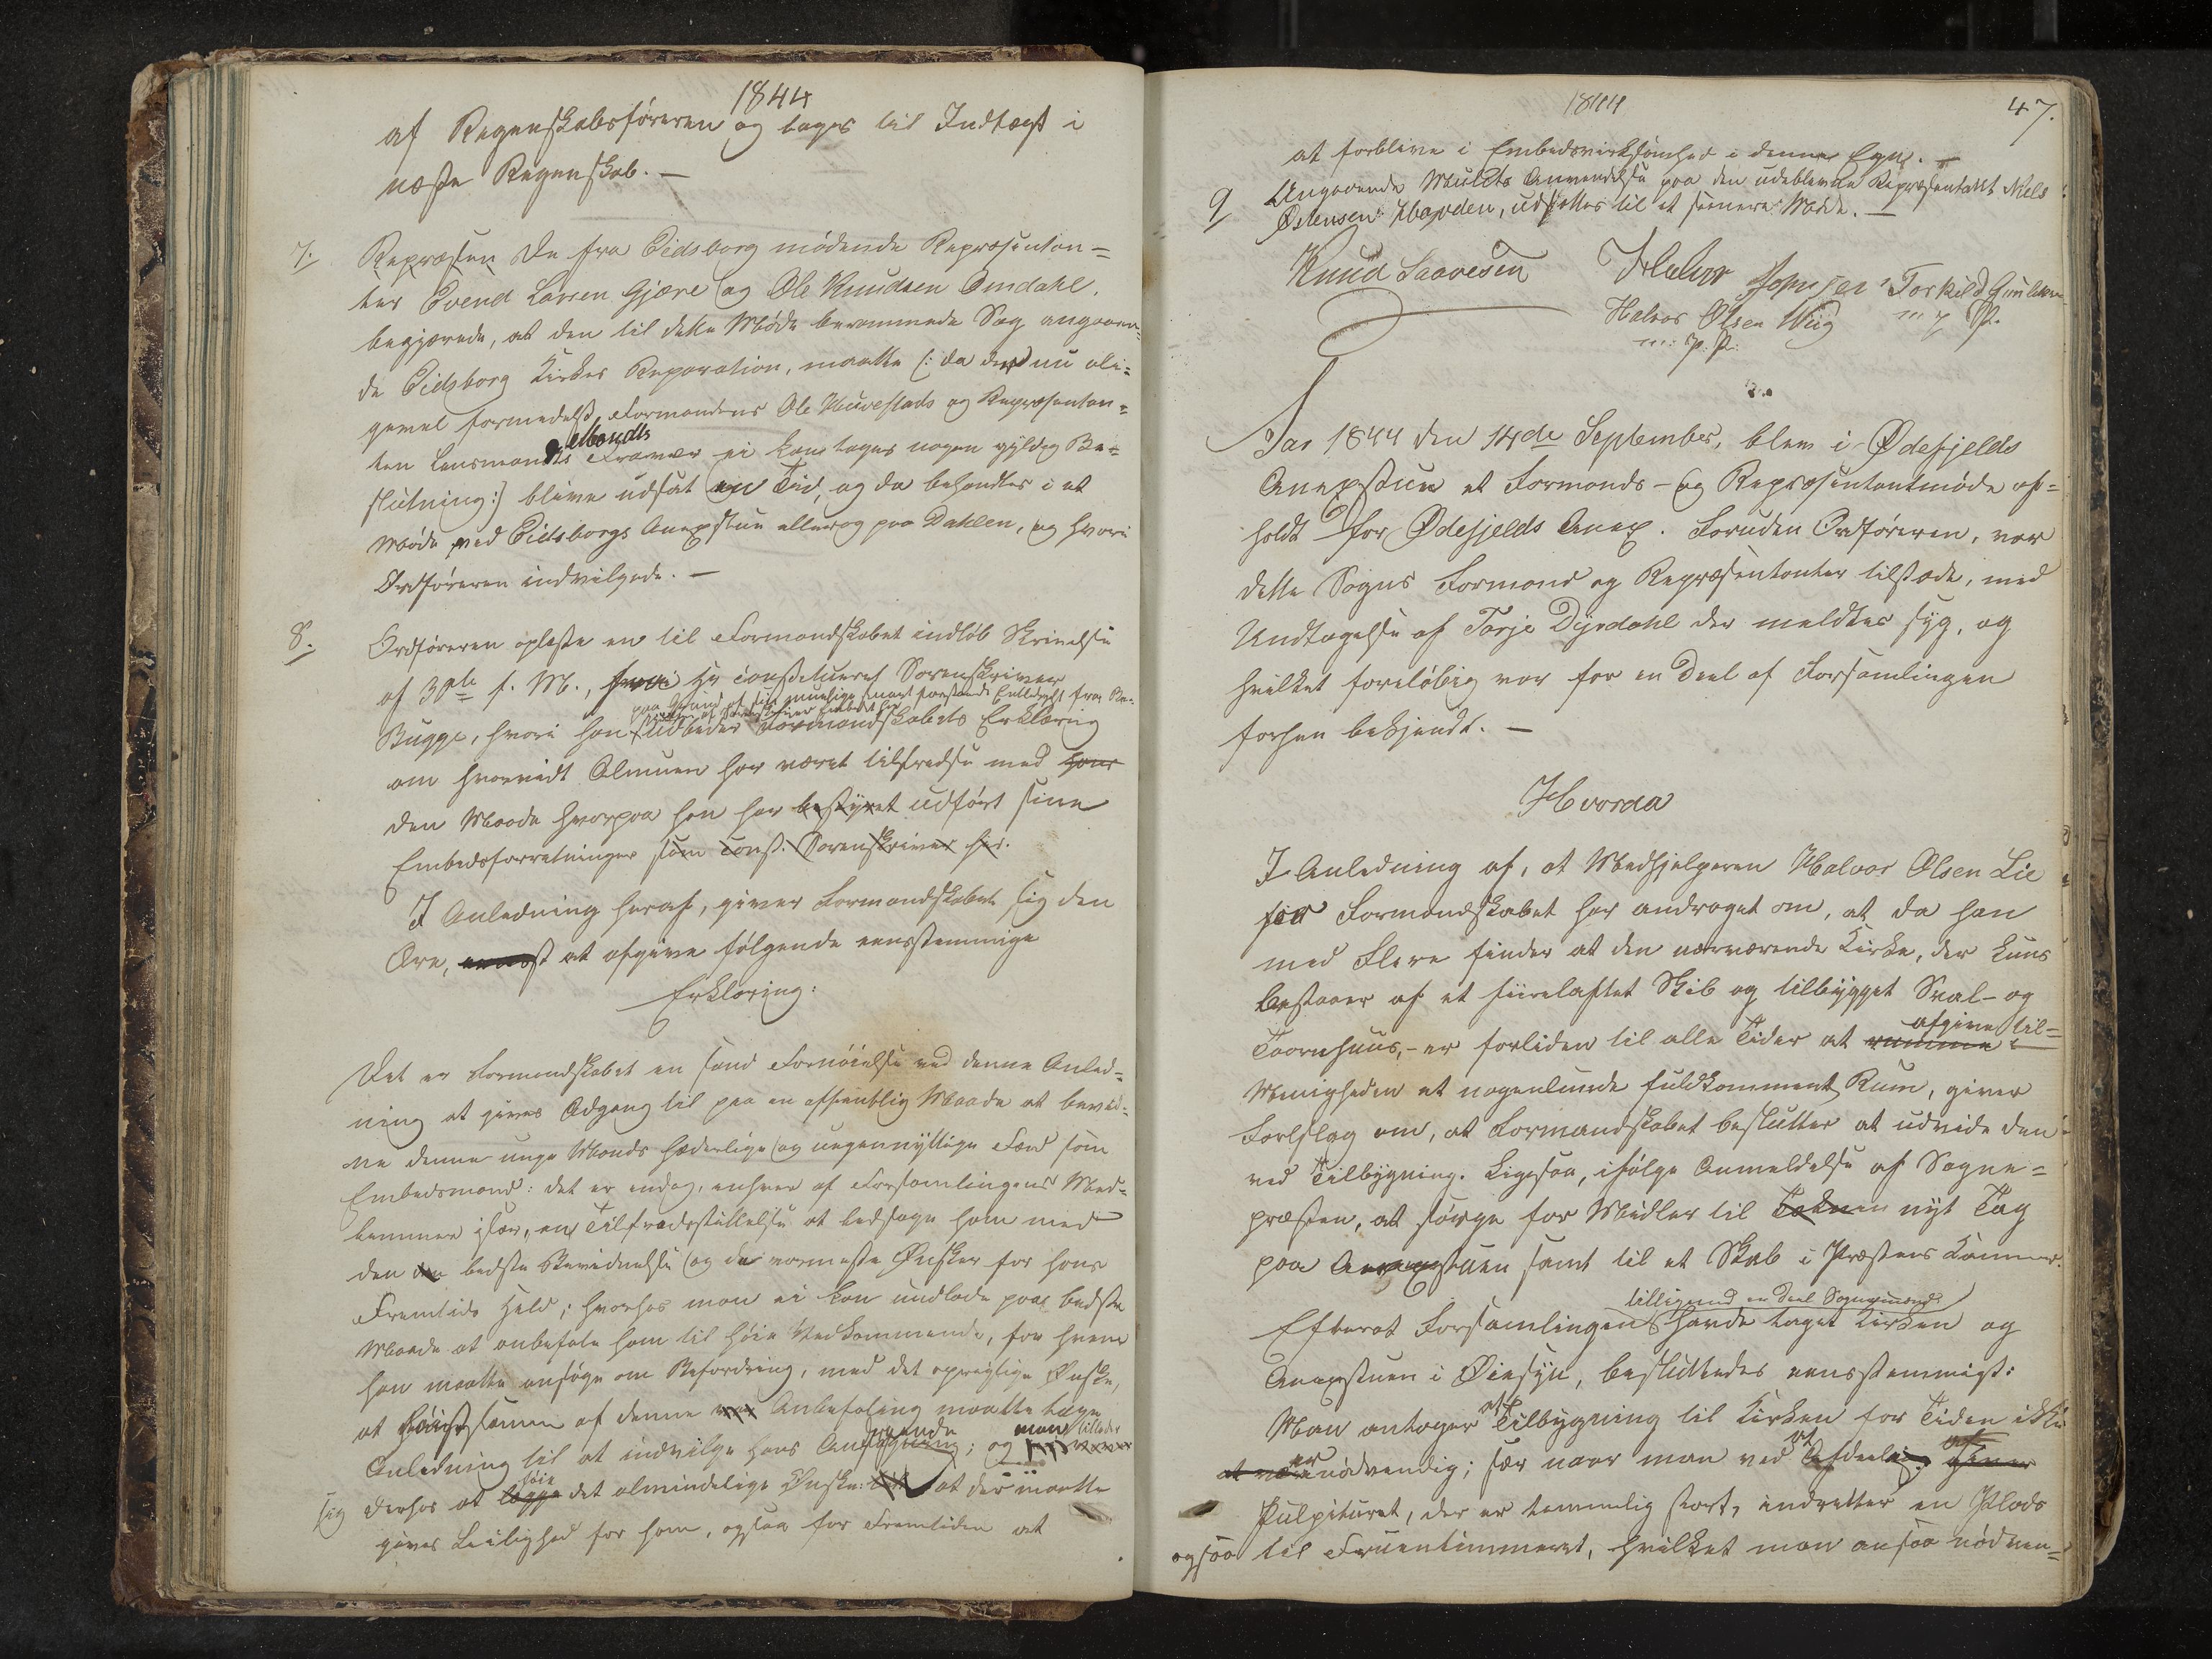 1844
af Regnskabsføreren og tages til Indtægt i
næste Regnskab. —
7. Repræsen De fra Eidsborg mødende Repræsentan=
ter Evend Larsen Gjære og Ole Knudsen Omdahl,
begjærede, at den til dette Møde berammede Sag angaaen=
de Eidsborg Kirkes Reparation, maatte (: da der nu ali=
gevel formedelst Formandens Ole Huvestads og Repræsentan=
ten Lensmand Mandts Fravær ei kan tages nogen gyldig Be=
slutning:) blive udsat en Tid, og da behandles i et
Møde ved Eidsborgs Anexstue ellerog paa Dahlen, og hvori
Ordføreren indvilgede. —
8. Ordføreren oplæste en til Formandskabet indløb Skrivelse
af 30te f. M., fra Hr constitueret Sorenskriver
paa Grund af sin muelige snart forestaaende fra
Bugge, hvori han udbeder Formandskabets Erklæring
om hvorvidt Almuen har været tilfredse med hans
den Maade hvorpaa han har bestyret udført sine
Embedsforretninger som const. Sorenskriver her.
I Anledning heraf, giver Formandskabet sig den
Ære, at afgive følgende eensstemmige
Erklæring:
Det er Formandskabet en sand Fornøielse ved denne Anled=
ning at gives Adgang til paa en offentlig Maade at bevid=
ne denne unge Mands hæderlige og uegennyttige Færd som
Embedsmand: det er endog, enhver af Forsamlingens Med=
lemmer især, en Tilfredsstillelse at ledsage ham med
den bedste Bevidnelse og de varmeste Ønsker for hans
Fremtids Held; hvorhos man ei kan undlade paa bedste
Maade at anbefale ham til høie Vedkommende, for hvem
han maatte ansøge om Befordring, med det oprigtige Ønske,
at Høistsamme af denne Anbefaling maatte tage
Anledning til at indvilge hans Ansøgning; og man tillader
sig derhos at lægge føie det almindelige Ønske: at der maatte
gives Leilighed for ham, ogsaa for Fremtiden at
1844
47.
at forblive i Embedsvirksomhed i denne Egn. —
9 Angaaende Mulcts Anvendelse paa den udeblevne Repræsentant Niels
Østensen Haveden, udsættes til et senere Møde. —
Knud Saavesen Halvor Johnsen Torkild
Halvor Olsen Wiig m. p. P.
m: p. P.
Aar 1844 den 14de September, blev i Ødefjelds
Anexstue et Formands- og Repræsentantmøde af=
holdt for Ødefjelds Anex. Foruden Ordføreren, var
dette Sogns Formand og Repræsentanter tilstæde, med
Undtagelse af Tarje Dyrdahl der meldtes syg, og
hvilket foreløbig var for en Deel af Forsamlingen
forhen bekjendt. —
Hvorda
I Anledning af, at Medhjelperen Halvor Olsen Lie
for Formandskabet har andraget om, at da han
med Flere finder at den nærværende Kirke, der kuns
bestaaer af et fiirelaftet Skib og tilbygget Sval- og
Taarnhuus, - er forliden til alle Tider at rumme afgive til=
Menigheden et nogenlunde fuldkomment Rum, giver
Forslag om, at Formandskabet beslutter at udvide den
ved Tilbygning. Ligesaa, ifølge Anmeldelse af Sogne=
præsten, at sørge for Midler til nyt Tag
paa Anexstuen samt til et Skab i Præstens Kammer.
tilligemed en Deel Sognemænd
Efterat Forsamlingen havde taget Kirken og
Anexstuen i Øiesyn, besluttedes eensstemmigt:
Man antager at Tilbygning til Kirken for Tiden ikke
at være er nødvendig; især naar man ved at Afdeeling af
Pulpituret, der er temmelig stort, indretter en Plads
ogsaa til Fruentimmeret, hvilket man ansaa nødven=